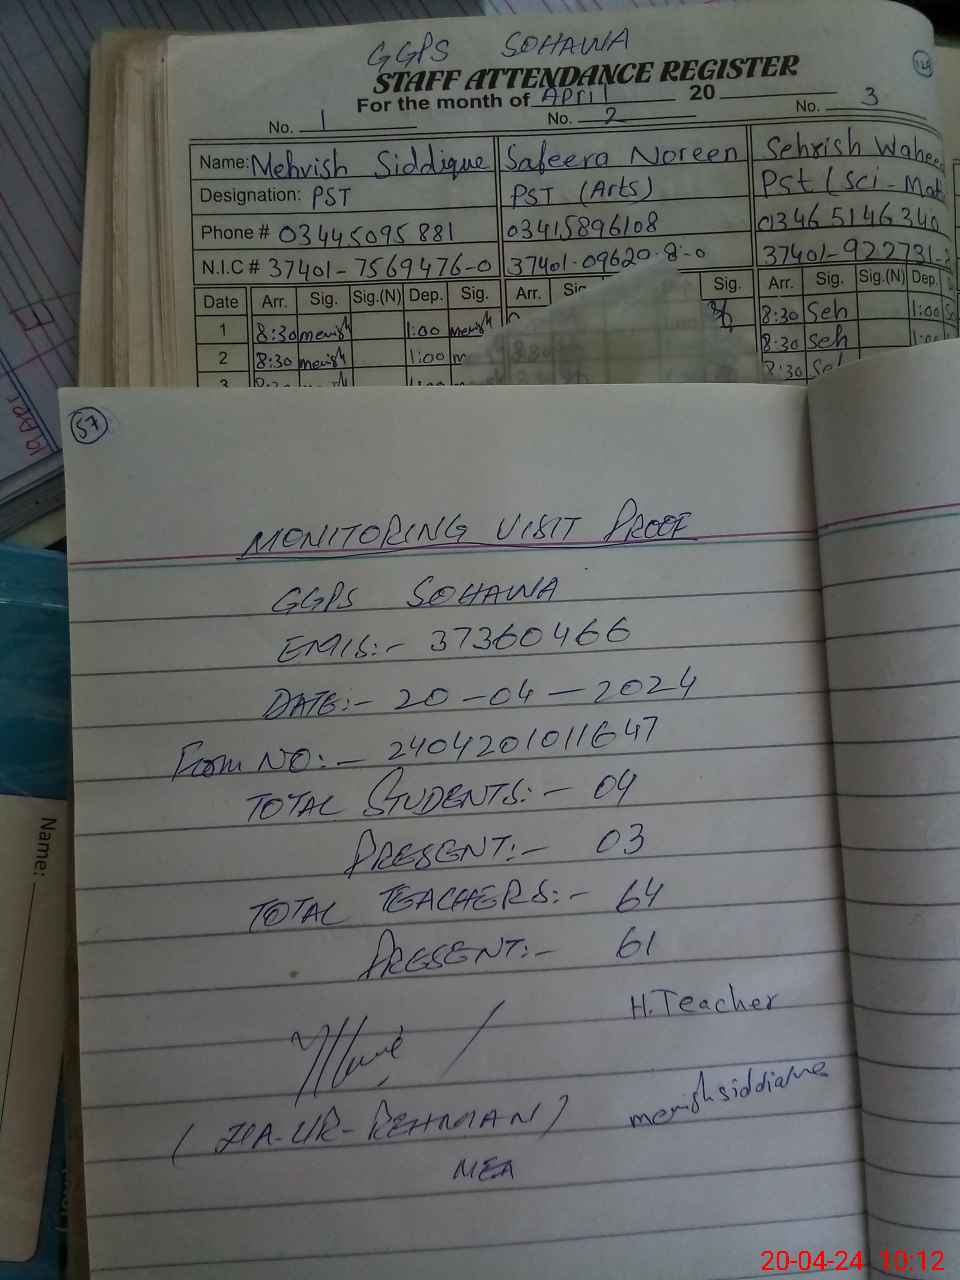 GGPS SOHAWA
128
STAFF ATTENDANCE REGISTER
For the month of April 20
No. 1 No. 2 No. 3
Name: Mehvish Siddique Safeera Noreen Sehrish Waheed
Designation: PST PST (Arts) Pst (Sci-Mat
Phone # 03445095881 03415896108 03465146340
N.I.C # 37401-7569476-0 37401-09620 8-0 37401-922731-
Date Arr. Sig. Sig.(N) Dep. Sig. Arr. Sig. Sig. Arr. Sig. Sig.(N) Dep.
1 8:30 merish 1:00 merish 8:30 Seh 1:00
2 8:30 merish 1:00 m 8:30 Seh 1:00
3 8:30 Seh
57
MONITORING VISIT PROOF
GGPS SOHAWA
EMIS:- 37360466
DATE:- 20-04-2024
Form NO:- 2404201011647
TOTAL STUDENTS:- 04
PRESENT:- 03
TOTAL TEACHERS:- 64
PRESENT:- 61
H.Teacher
(ZIA-UR-REHMAN) merishsiddiqme
MEA
Name:
20-04-24 10:12